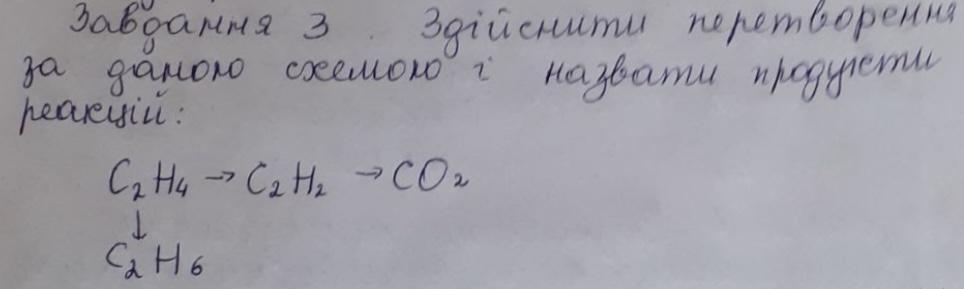 Завдання 3. Здійснити перетворення
за даною схемою і назвати продукти
реакцій:
C₂H₄ → C₂H₂ → CO₂
↓
C₂H₆